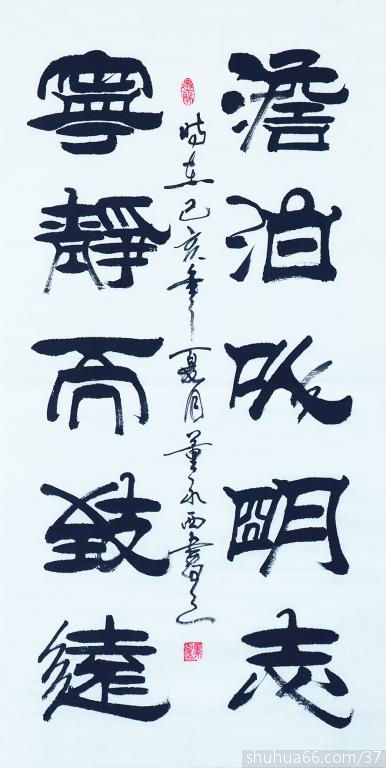 澹泊以明志
寧靜而致遠
時在己亥年夏月董永西書之
shuhua66.com/37